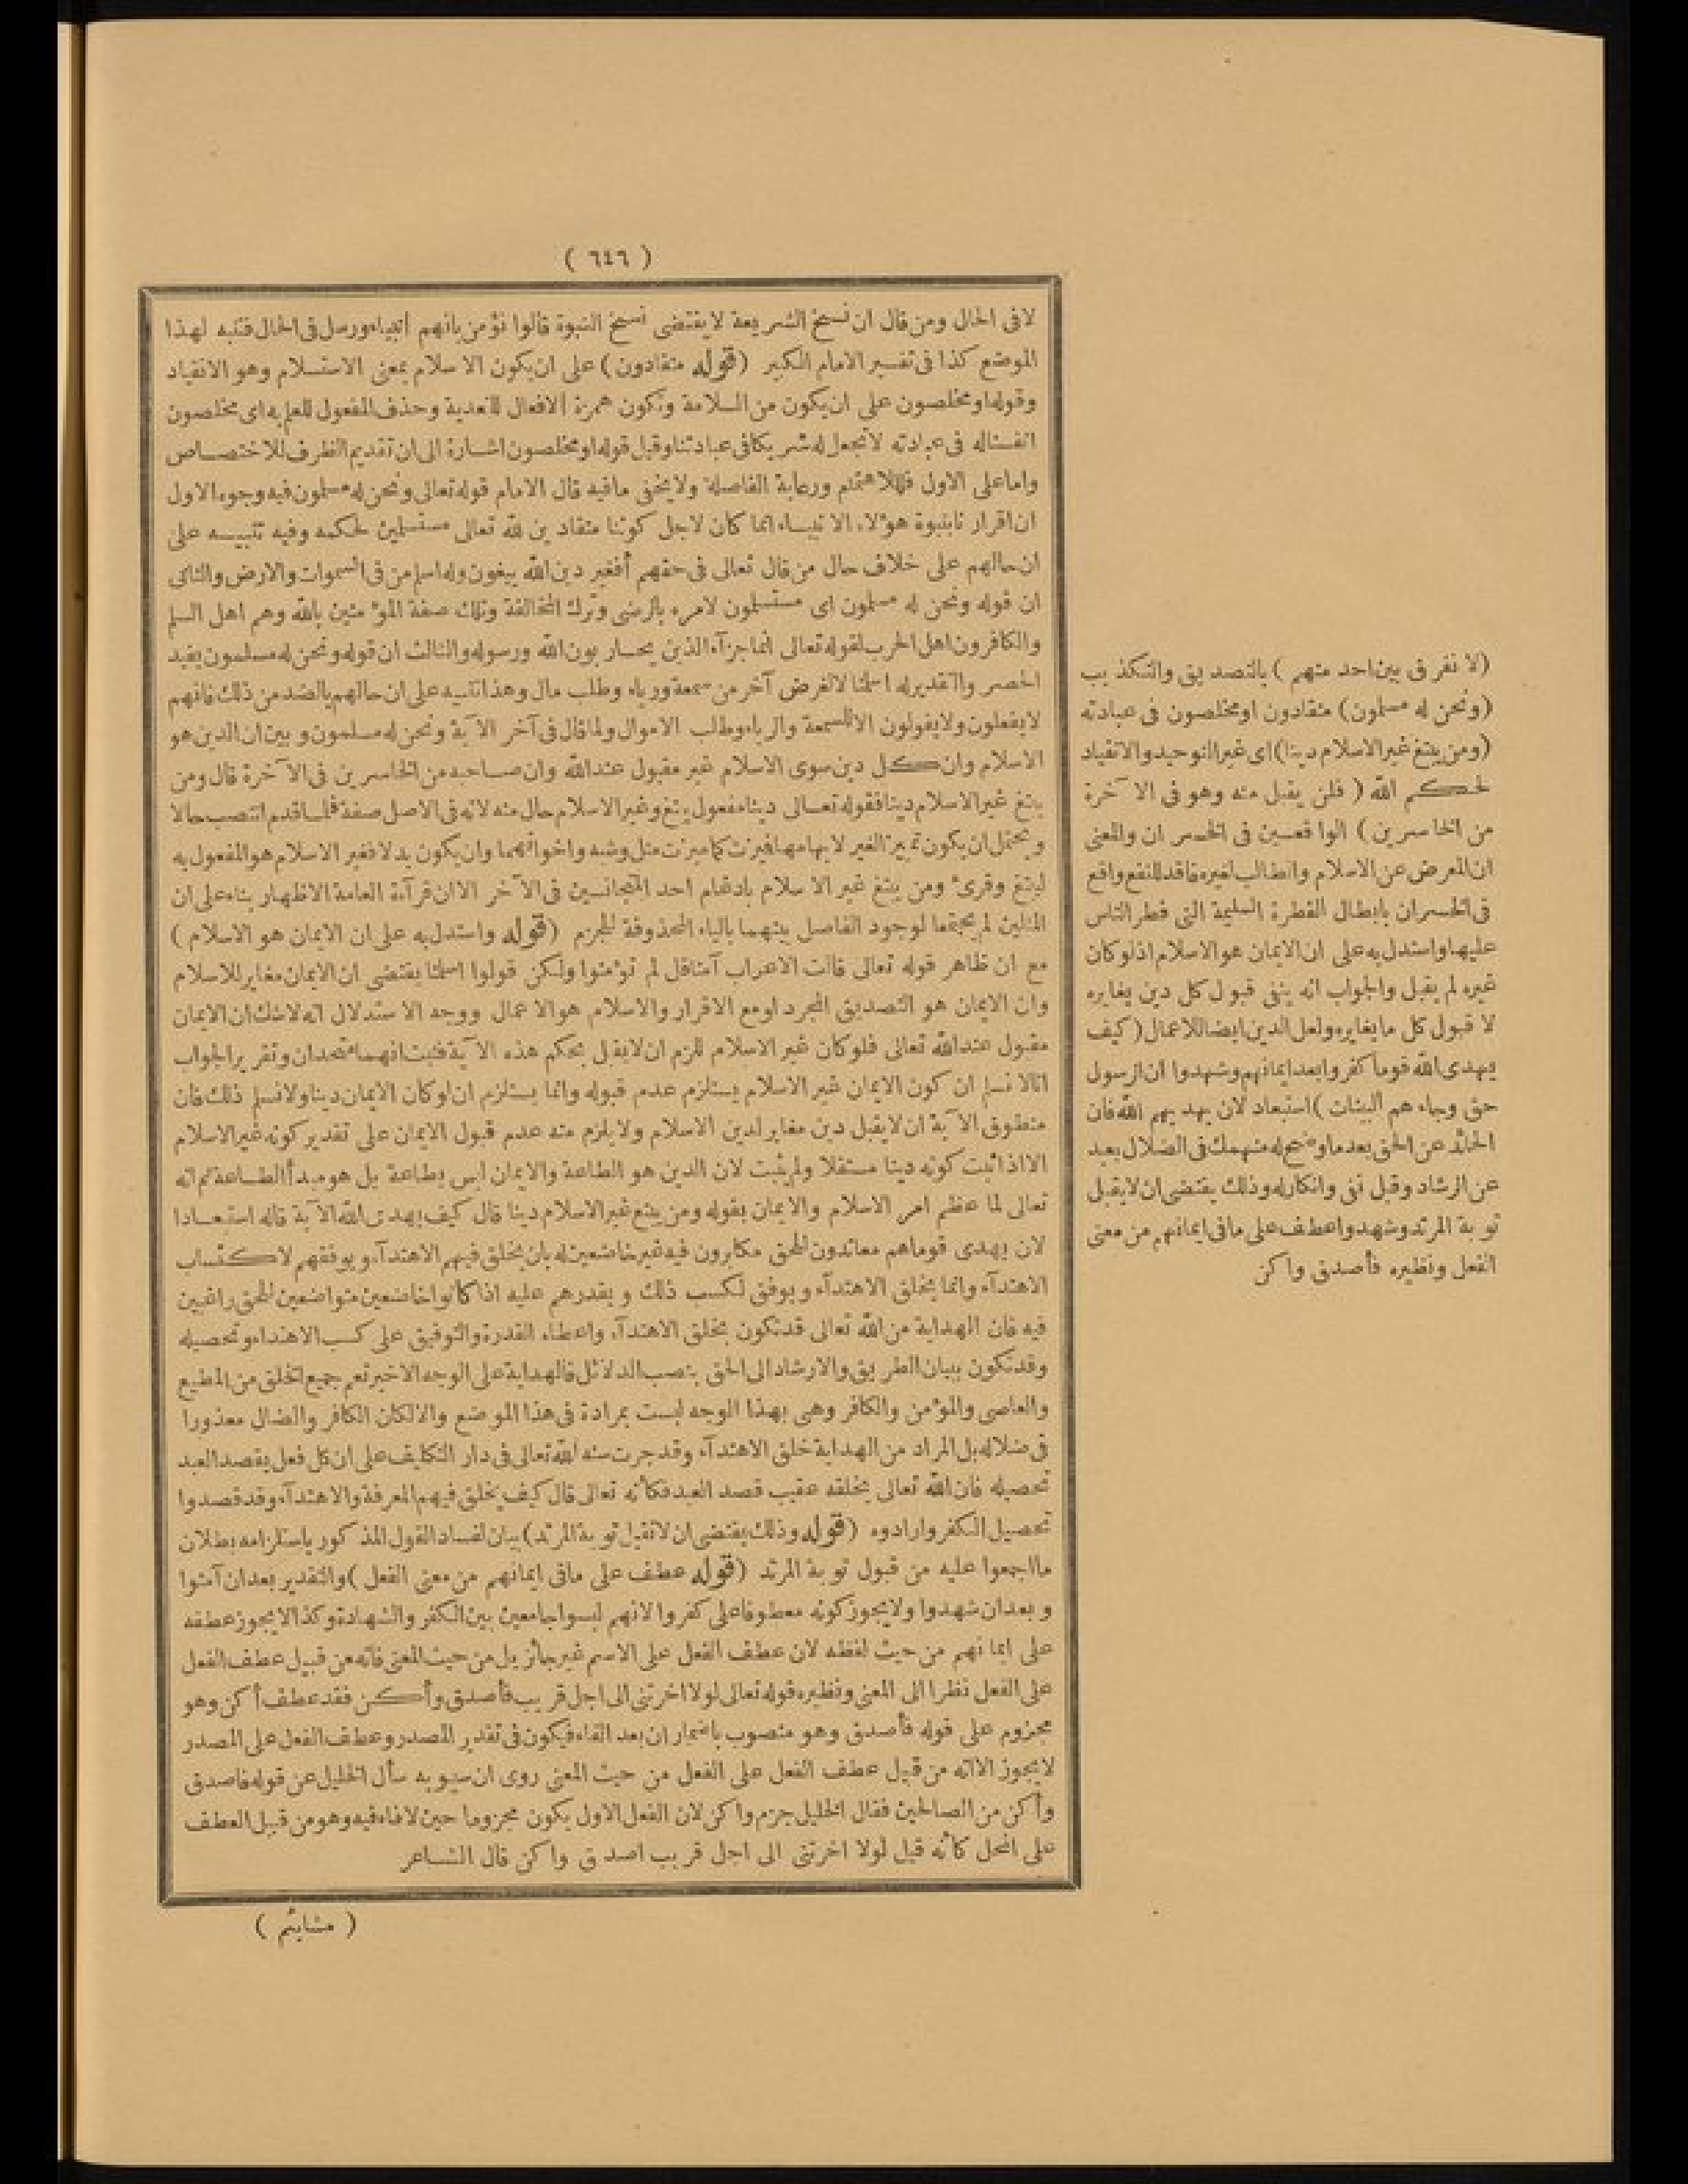 ( ٦٤٦ )
لافى الحال ومن قال ان نسخ الشريعة لا يقتضى نسخ النبوة قالوا نؤمن بانهم انبياء ورسل فى الحال فتنبه لهذا
الموضع كذا فى تفسير الامام الكبير (قوله منقادون) على ان يكون الاسلام بمعنى الاستسلام وهو الانقياد
وقوله او مخلصون على ان يكون من السلامة وتكون همزة الافعال للتعدية وحذف المفعول للعلم به اى مخلصون
انفسنا له فى عبادته لا نجعل له شريكا فى عبادتنا وقيل قوله او مخلصون اشارة الى ان تقديم الظرف للاختصاص
واما على الاول فللاهتمام ورعاية الفاصلة ولا يخفى ما فيه قال الامام قوله تعالى ونحن له مسلمون فيه وجوه الاول
ان اقرارنا بنبوة هؤلاء الانبياء انما كان لاجل كوننا منقادين لله تعالى مستسلمين لحكمه وفيه تنبيه على
ان حالهم على خلاف حال من قال تعالى فى حقهم أفغير دين الله يبغون وله اسلم من فى السموات والارض والثانى
ان قوله ونحن له مسلمون اى مستسلمون لامره بالرضى وترك المخالفة وتلك صفة المؤمنين بالله وهم اهل السلم
والكافرون اهل الحرب لقوله تعالى انما جزآء الذين يحاربون الله ورسوله والثالث ان قوله ونحن له مسلمون يفيد
الحصر والتقدير له اسلمنا لا لغرض آخر من سمعة ورياء وطلب مال وهذا تنبيه على ان حالهم بالضد من ذلك فانهم
لا يفعلون ولا يقولون الا للسمعة والرياء وطلب الاموال ولما قال فى آخر الآية ونحن له مسلمون وبين ان الدين هو
الاسلام وان كل دين سوى الاسلام غير مقبول عند الله وان صاحبه من الخاسرين فى الآخرة قال ومن
يبتغ غير الاسلام دينا فقوله تعالى دينا مفعول يبتغ وغير الاسلام حال منه لانه فى الاصل صفة فلما قدم انتصب حالا
ويحتمل ان يكون تمييزا لغير لابهامها فميزت كما ميزت مثل وشبه واخواتهما وان يكون بدلا فغير الاسلام هو المفعول به
ليبتغ وقرئ ومن يبتغ غير الاسلام بادغام احد المتجانسين فى الآخر الا ان قرآءة العامة الاظهار بناء على ان
المثلين لم يجتمعا لوجود الفاصل بينهما بالياء المحذوفة للجزم (قوله واستدل به على ان الايمان هو الاسلام )
مع ان ظاهر قوله تعالى قالت الاعراب آمنا قل لم تؤمنوا ولكن قولوا اسلمنا يقتضى ان الايمان مغاير للاسلام
وان الايمان هو التصديق المجرد او مع الاقرار والاسلام هو الاعمال ووجه الاستدلال انه لا شك ان الايمان
مقبول عند الله تعالى فلو كان غير الاسلام للزم ان لا يقبل بحكم هذه الآية فثبت انهما متحدان وتقرير الجواب
انا لا نسلم ان كون الايمان غير الاسلام يستلزم عدم قبوله وانما يستلزم ان لو كان الايمان دينا ولا نسلم ذلك فان
منطوق الآية ان لا يقبل دين مغاير لدين الاسلام ولا يلزم منه عدم قبول الايمان على تقدير كونه غير الاسلام
الا اذا ثبت كونه دينا مستقلا ولم يثبت لان الدين هو الطاعة والايمان ليس بطاعة بل هو مبدأ الطاعة ثم انه
تعالى لما عظم امر الاسلام والايمان بقوله ومن يبتغ غير الاسلام دينا قال كيف يهدى الله الآية قاله استبعادا
لان يهدى قوما هم معاندون للحق مكابرون فيه غير خاضعين له بان يخلق فيهم الاهتدآء ويوفقهم لاكتساب
الاهتدآء وانما يخلق الاهتدآء ويوفق لكسب ذلك ويقدرهم عليه اذا كانوا خاضعين متواضعين للحق راغبين
فيه فان الهداية من الله تعالى قد تكون بخلق الاهتدآء واعطاء القدرة والتوفيق على كسب الاهتداء وتحصيله
وقد تكون ببيان الطريق والارشاد الى الحق بنصب الدلائل فالهداية على الوجه الاخير تعم جميع الخلق من المطيع
والعاصى والمؤمن والكافر وهى بهذا الوجه ليست بمرادة فى هذا الموضع والا لكان الكافر والضال معذورا
فى ضلاله بل المراد من الهداية خلق الاهتدآء وقد جرت سنة الله تعالى فى دار التكليف على ان كل فعل يقصد العبد
تحصيله فان الله تعالى يخلقه عقيب قصد العبد فكأنه تعالى قال كيف يخلق فيهم المعرفة والاهتدآء وقد قصدوا
تحصيل الكفر وارادوه (قوله وذلك يقتضى ان لا تقبل توبة المرتد) بيان لفساد القول المذكور باستلزامه بطلان
ما اجمعوا عليه من قبول توبة المرتد (قوله عطف على ما فى ايمانهم من معنى الفعل ) والتقدير بعد ان آمنوا
وبعد ان شهدوا ولا يجوز كونه معطوفا على كفروا لانهم ليسوا جامعين بين الكفر والشهادة وكذا لا يجوز عطفه
على ايمانهم من حيث لفظه لان عطف الفعل على الاسم غير جائز بل من حيث المعنى فانه من قبيل عطف الفعل
على الفعل نظرا الى المعنى ونظيره قوله تعالى لولا اخرتنى الى اجل قريب فأصدق وأكن فقد عطف أكن وهو
مجزوم على قوله فأصدق وهو منصوب باضمار ان بعد الفاء فيكون فى تقدير المصدر وعطف الفعل على المصدر
لا يجوز الا انه من قبيل عطف الفعل على الفعل من حيث المعنى روى ان سيبويه سأل الخليل عن قوله فاصدق
وأكن من الصالحين فقال الخليل جزم واكن لان الفعل الاول يكون مجزوما حين لا فاء فيه وهو من قبيل العطف
على المحل كأنه قيل لولا اخرتنى الى اجل قريب اصدق واكن قال الشاعر
( مشايئم )
(لا نفرق بين احد منهم ) بالتصديق والتكذيب
(ونحن له مسلمون) منقادون او مخلصون فى عبادته
(ومن يبتغ غير الاسلام دينا) اى غير التوحيد والانقياد
لحكم الله ( فلن يقبل منه وهو فى الآخرة
من الخاسرين ) الواقعين فى الخسران والمعنى
ان المعرض عن الاسلام والطالب لغيره فاقد للنفع واقع
فى الخسران بابطال الفطرة السليمة التى فطر الناس
عليها واستدل به على ان الايمان هو الاسلام اذ لو كان
غيره لم يقبل والجواب انه ينفى قبول كل دين يغايره
لا قبول كل ما يغايره ولعل الدين ايضا للاعمال ( كيف
يهدى الله قوما كفروا بعد ايمانهم وشهدوا ان الرسول
حق وجاءهم البينات ) استبعاد لان يهديهم الله فان
الحائد عن الحق بعد ما وضح له منهمك فى الضلال بعيد
عن الرشاد وقيل نفى وانكار له وذلك يقتضى ان لا يقبل
توبة المرتد وشهدوا عطف على ما فى ايمانهم من معنى
الفعل ونظيره فأصدق واكن